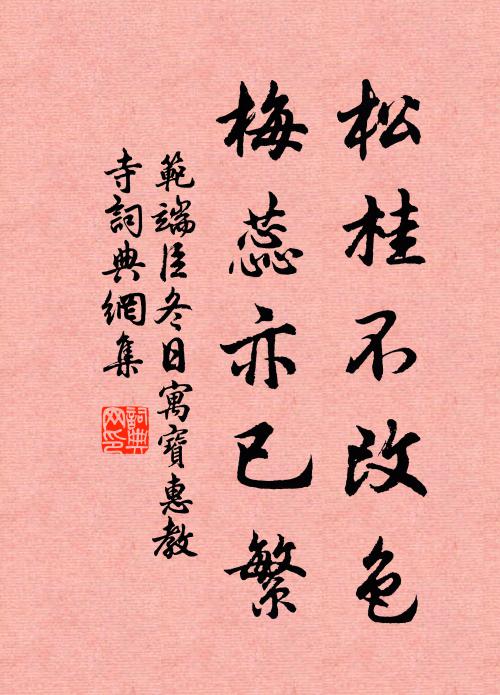 松桂不改色
梅蕊亦已繁
範端臣冬日寓寶惠教
寺詞典網集
詞典网印